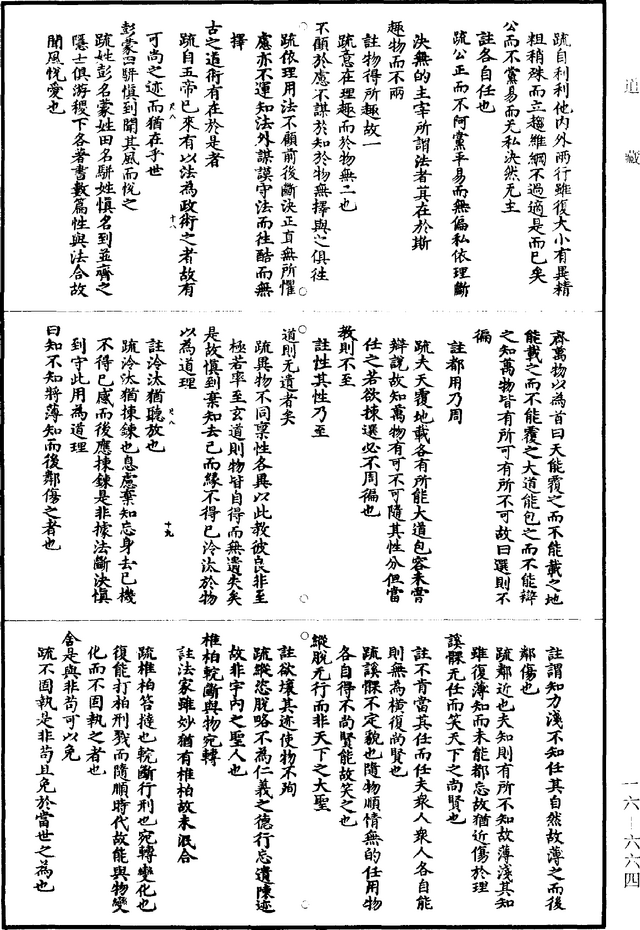 道藏
疏自利利他內外兩行雖復大小有異精
粗稍殊而立趨維綱不過適是而已矣
公而不黨易而无私決然无主
註各自任也
疏公正而不阿黨平易而無偏私依理斷
決無的主宰所謂法者其在於斯
趣物而不兩
註物得所趣故一
疏意在理趣而於物無二也
不顧於慮不謀於知於物無擇與之俱往
疏依理用法不顧前後斷決正直無所懼
慮亦不運知法外謀謨守法而往酷而無
擇
古之道術有在於是者
疏自五帝已來有以法為政術之者故有
尺八
十八
可尚之迹而猶在乎世
彭蒙田駢慎到聞其風而悅之
疏姓彭名蒙姓田名駢姓慎名到並齊之
隱士俱游稷下各著書數篇性與法合故
聞風悅愛也
齊萬物以為首曰天能覆之而不能載之地
能載之而不能覆之大道能包之而不能辯
之知萬物皆有所可有所不可故曰選則不
徧
註都用乃周
疏夫天覆地載各有所能大道包容未嘗
辯說故知萬物有可不可隨其性分但當
任之若欲揀選必不周徧也
教則不至
註性其性乃至
道則无遺者矣
疏異物不同稟性各異以此教彼良非至
極若率至玄道則物皆自得而無遺失矣
是故慎到棄知去己而緣不得已泠汰於物
以為道理
註泠汰猶聽放也
尺八
十九
疏泠汰猶揀鍊也息慮棄知忘身去己機
不得已感而後應揀鍊是非據法斷決慎
到守此用為道理
曰知不知將薄知而後鄰傷之者也
註謂知力淺不知任其自然故薄之而後
鄰傷也
疏鄰近也夫知則有所不知故薄淺其知
雖復薄知而未能都忘故猶近傷於理
謑髁无任而笑天下之尚賢也
註不肯當其任而任夫眾人眾人各自能
則無為橫復尚賢也
疏謑髁不定貌也隨物順情無的任用物
各自得不尚賢能故笑之也
縱脫无行而非天下之大聖
註欲壞其迹使物不殉
疏縱恣脫略不為仁義之德行忘遺陳迹
故非宇內之聖人也
椎柏輐斷與物宛轉
註法家雖妙猶有椎柏故未泯合
疏椎柏笞撻也輐斷行刑也宛轉變化也
復能打柏刑戮而隨順時代故能與物變
化而不固執之者也
舍是與非苟可以免
疏不固執是非苟且免於當世之為也
一六—六六四